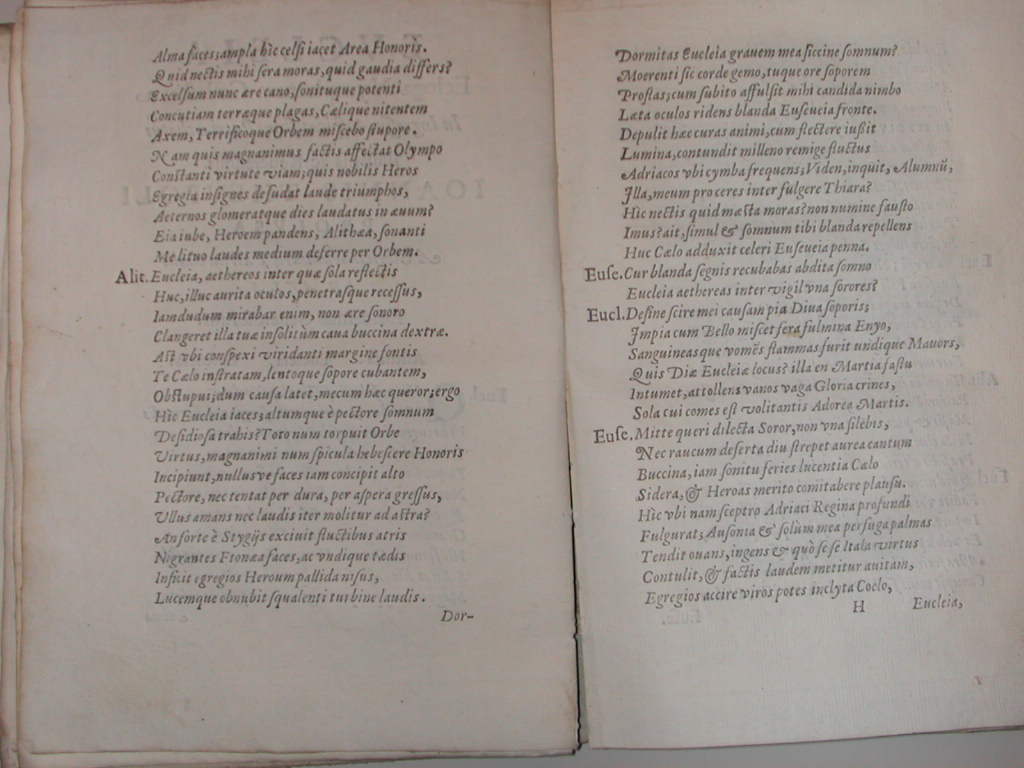 Alma faces; ampla hìc celsi iacet Area Honoris.
Quid nectis mihi sera moras, quid gaudia differs?
Excelsum nunc ære cano, sonituque potenti
Concutiam terræque plagas, Cælique nitentem
Axem, Terrificoque Orbem miscebo stupore.
Nam quis magnanimus factis affectat Olympo
Constanti virtute viam; quis nobilis Heros
Egregia insignes desudat laude triumphos,
Aeternos glomeratque dies laudatus in æuum?
Eia iube, Heroem pandens, Alithæa, sonanti
Me lituo laudes medium deferre per Orbem.
Alit. Eucleia, aethereos inter quæ sola reflectis
Huc, illuc aurita oculos, penetrasque recessus,
Iamdudum mirabar enim, non ære sonoro
Clangeret illa tuæ insolitùm caua buccina dextræ.
Ast vbi conspexi viridanti margine fontis
Te Cælo instratam, lentoque sopore cubantem,
Obstupui; dum causa latet, mecum hæc queror; ergo
Hìc Eucleia iaces; altumque è pectore somnum
Desidiosa trahis? Toto num torpuit Orbe
Virtus, magnanimi num spicula hebescere Honoris
Incipiunt, nullusve faces iam concipit alto
Pectore, nec tentat per dura, per aspera gressus,
Vllus amans nec laudis iter molitur ad astra?
An forte è Stygijs exciuit fluctibus atris
Nigrantes Ftonea faces, ac vndique tædis
Inficit egregios Heroum pallida nisus,
Lucemque obnubit squalenti turbine laudis.
Dor-
Dormitas Eucleia grauem mea siccine somnum?
Moerenti sic corde gemo, tuque ore soporem
Proflas; cum subito affulsit mihi candida nimbo
Læta oculos ridens blanda Euseueia fronte.
Depulit hæc curas animi, cum flectere iußit
Lumina, contundit milleno remige fluctus
Adriacos vbi cymba frequens; Viden, inquit, Alumnũ,
Illa, meum proceres inter fulgere Thiara?
Hìc nectis quid mæsta moras? non numine fausto
Imus? ait, simul & somnum tibi blanda repellens
Huc Cælo adduxit celeri Euseueia penna.
Euse. Cur blanda segnis recubabas abdita somno
Eucleia aethereas inter vigil vna sorores?
Eucl. Desine scire mei causam pia Diua soporis;
Impia cum Bello miscet fera fulmina Enyo,
Sanguineasque vomẽs flammas furit undique Mauors,
Quis Diæ Eucleiæ locus? illa en Martia fastu
Intumet, attollens vanos vaga Gloria crines,
Sola cui comes est volitantis Adorea Martis.
Euse. Mitte queri dilecta Soror, non vna silebis,
Nec raucum deserta diu strepet aurea cantum
Buccina, iam sonitu feries lucentia Cælo
Sidera, & Heroas merito comitabere plausu.
Hìc vbi nam sceptro Adriaci Regina profundi
Fulgurat, Ausonia & solùm mea perfuga palmas
Tendit ouans, ingens & quò se se Itala virtus
Contulit, & factis laudem metitur auitam,
Egregios accire viros potes inclyta Coelo,
H
Eucleia,